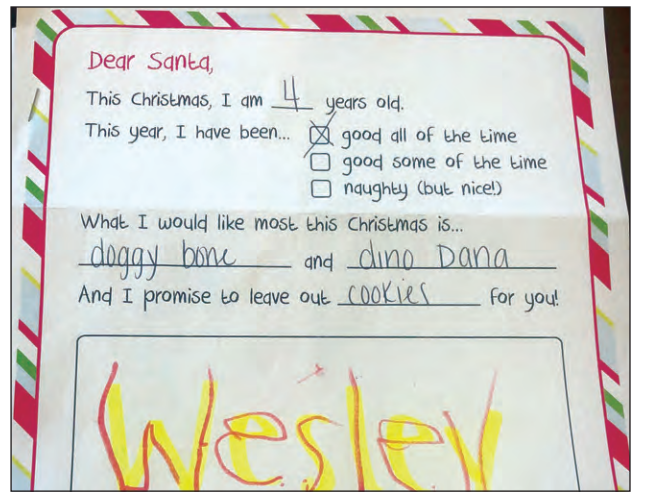 Dear Santa,
This Christmas, I am 4 years old.
This year, I have been... good all of the time
good some of the time
naughty (but nice!)
What I would like most this Christmas is...
doggy bone and dino Dana
And I promise to leave out cookies for you!
Wesley